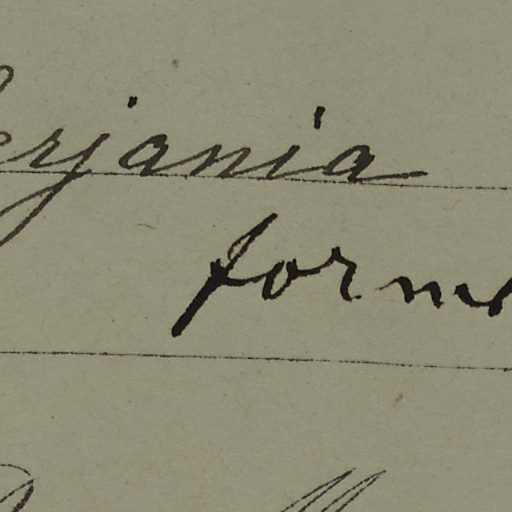 erjania
form